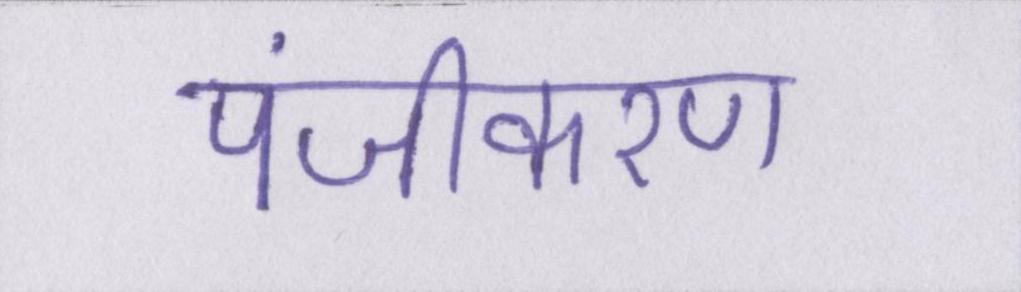 पंजीकरण